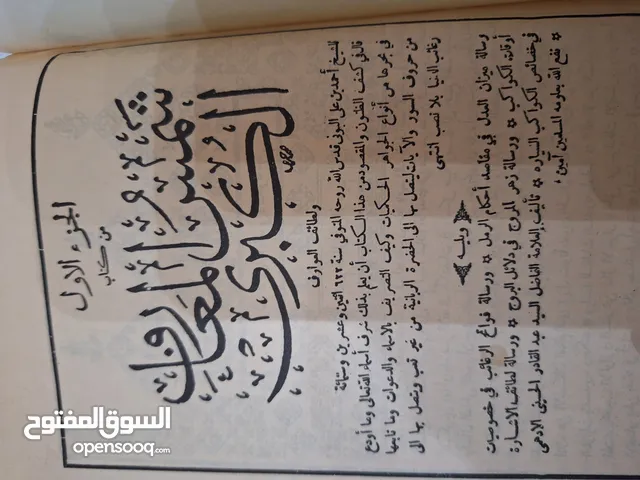 الجزء الاول
من كتاب
شمس المعارف
الكبرى
ولطائف العوارف
للشيخ أحمد بن على البونى قدس الله روحه المتوفى سنة ٦٢٢ اثنين وعشرين وستمائة
قال فى كشف الظنون والمقصود من هذا الكتاب أن يعلم بذلك شرف أسماء الله تعالى وما أودع
فى بحرها من أنواع الجواهر الحكميات وكيف التصريف بالأسماء والدعوات وما تابعها
من حروف السور والآيات ليتصل بها الى الحضرة الربانية من غير تعب ويتصل بها الى
رغائب الدنيا بلا نصب انتهى
ويليه
رسالة ميزان العدل فى مقاصد أحكام الرمل * ورسالة فواتح الرغائب فى خصوصيات
أوقات الكواكب * ورسالة زهر المروج فى دلائل البروج * ورسالة لطائف الاشارة
فى خصائص الكواكب السيارة * تأليف العلامة الفاضل السيد عبد القادر الحسينى الادهمى
* نفع الله بعلومه المسلمين آمين *
السوق المفتوح
opensooq.com